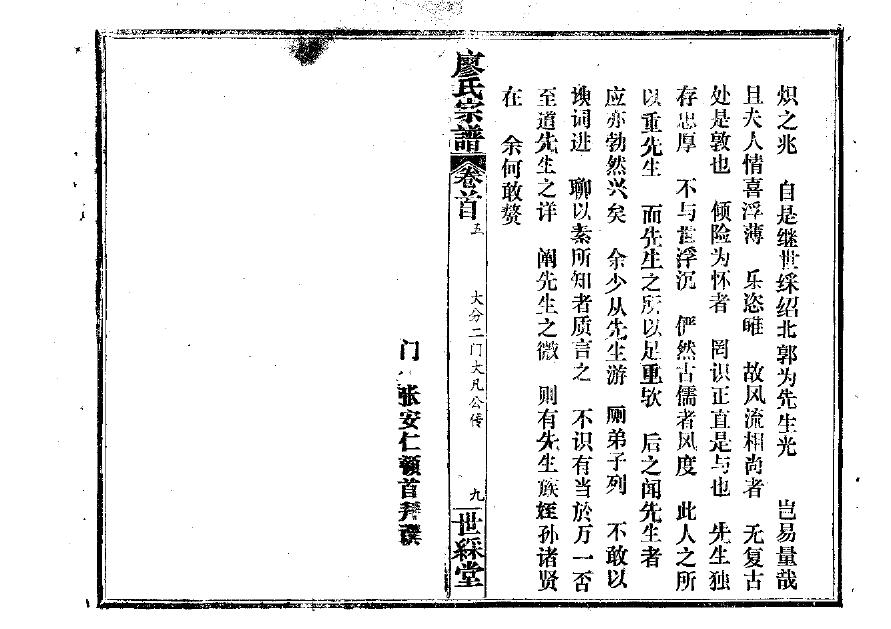 炽之兆　自是继世綵绍北郭为先生光　岂易量哉
且夫人情喜浮薄　乐恣睢　故风流相尚者　无复古
处是敦也　倾险为怀者　罔识正直是与也　先生独
存忠厚　不与世浮沉　俨然古儒者风度　此人之所
以重先生　而先生之所以足重欤　后之闻先生者
应亦勃然兴矣　余少从先生游　厕弟子列　不敢以
谀词进　聊以素所知者质言之　不识有当於万一否
至道先生之详　阐先生之微　则有先生族姪孙诸贤
在　余何敢赘
廖氏宗譜　卷首　五　大分二门大凡公传　九　世綵堂
门人张安仁顿首拜撰